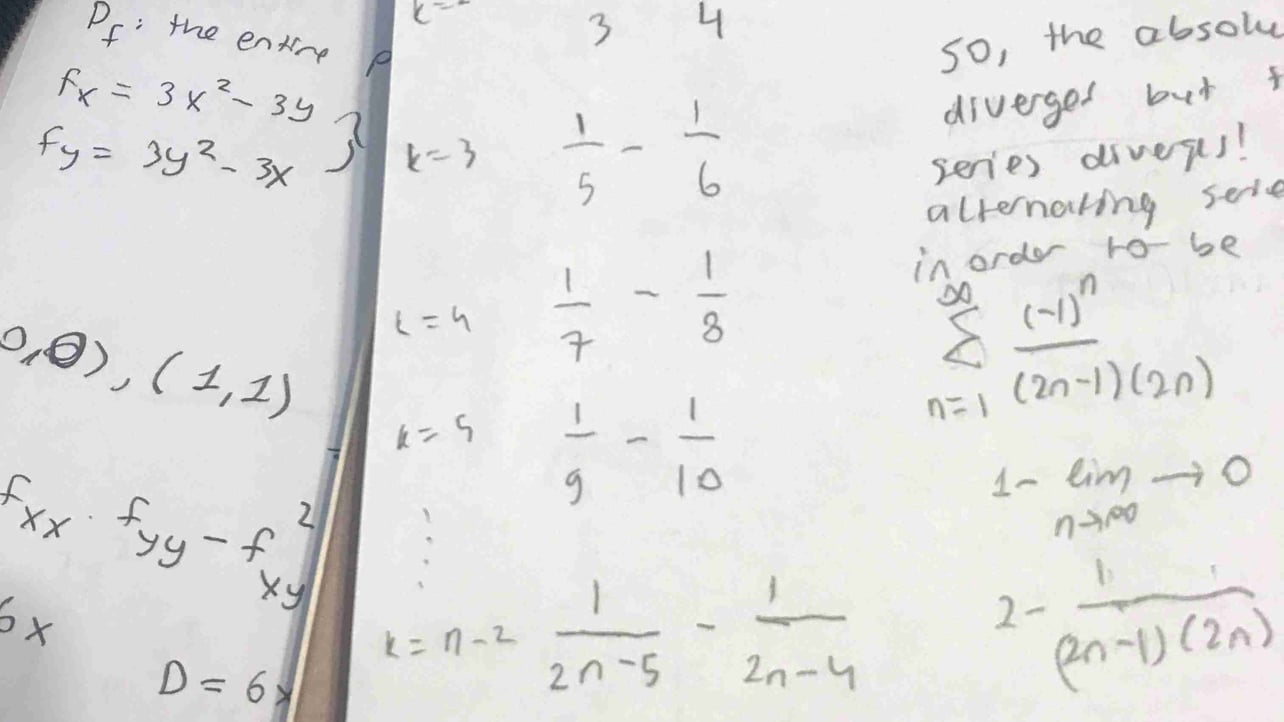 Df: the entire p
fx = 3x² - 3y
fy = 3y² - 3x }
0,0), (1,1)
fxx · fyy - f²xy
6x
D = 6x
k=
3 4
k=3 1/5 - 1/6
k=4 1/7 - 1/8
k=5 1/9 - 1/10
⋮
k=n-2 1/(2n-5) - 1/(2n-4)
so, the absolu
diverges but t
series diverges!
alternating serie
in order to be
∞ Σ n=1 (-1)^n/((2n-1)(2n))
1- lim n→∞ → 0
2- 1/((2n-1)(2n))